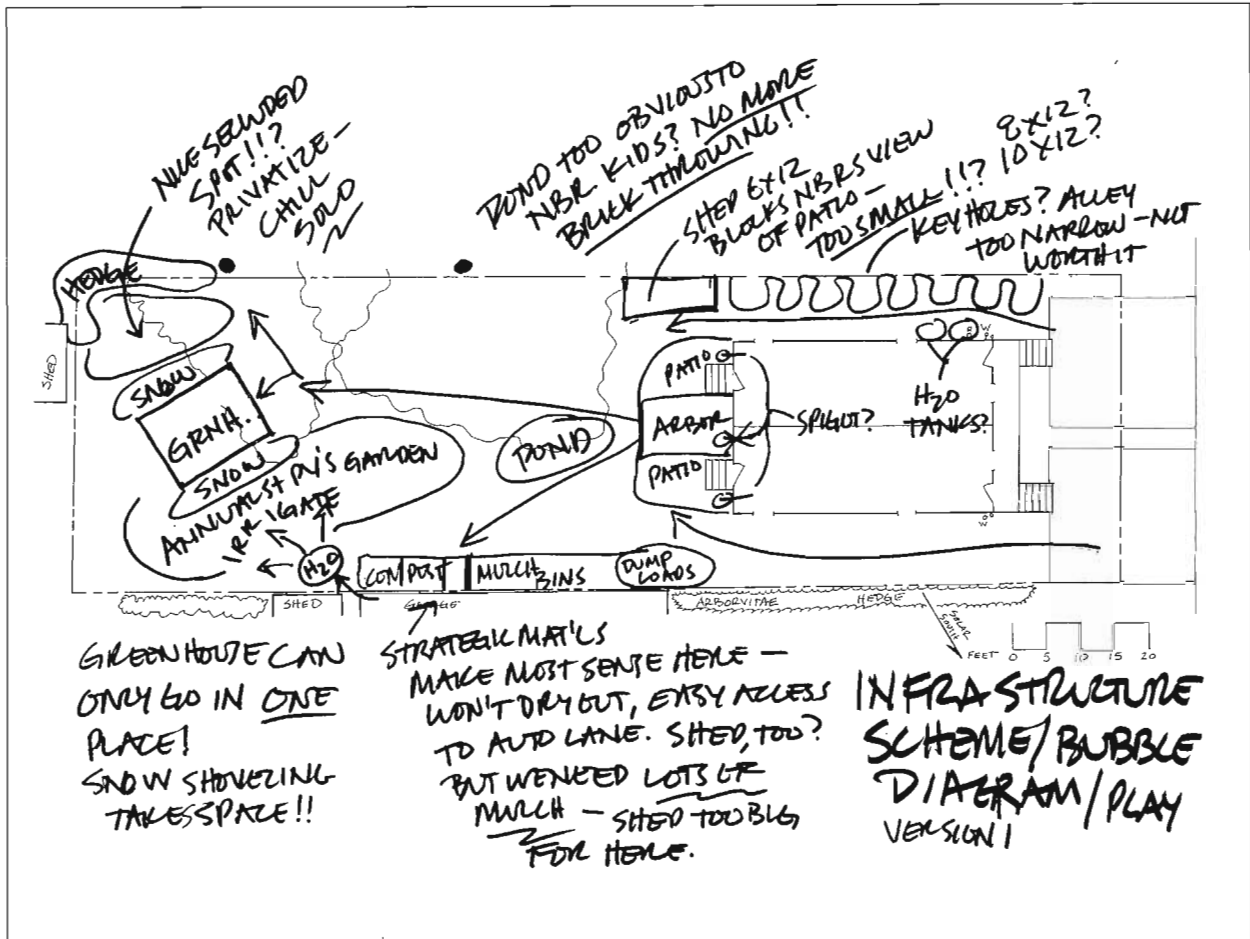 NICE SECLUDED
SPOT!!?
PRIVATIZE—
CHILL
SOLO
POND TOO OBVIOUS TO
NBR. KIDS? NO MORE
BRICK THROWING!!
SHED 6X12
BLOCKS NBRS VIEW
OF PATIO—
TOO SMALL!!?
8X12?
10X12?
KEYHOLES? ALLEY
TOO NARROW—NOT
WORTH IT
HEDGE
SHED
SNOW
GRNH.
SNOW
ANNUALS + PN'S GARDEN
IRRIGATE
POND
PATIO
ARBOR
PATIO
SPIGOT?
H2O
TANKS?
H2O
COMPOST
MULCH BINS
DUMP
LOADS
SHED
GARAGE
ARBORVITAE HEDGE
SOLAR
SOUTH
FEET 0 5 10 15 20
GREENHOUSE CAN
ONLY GO IN ONE
PLACE!
SNOW SHOVELING
TAKES SPACE!!
STRATEGIC MAT'LS
MAKE MOST SENSE HERE —
WON'T DRY OUT, EASY ACCESS
TO AUTO LANE. SHED, TOO?
BUT WE NEED LOTS OF
MULCH — SHED TOO BIG
FOR HERE.
INFRASTRUCTURE
SCHEME/BUBBLE
DIAGRAM/PLAY
VERSION 1